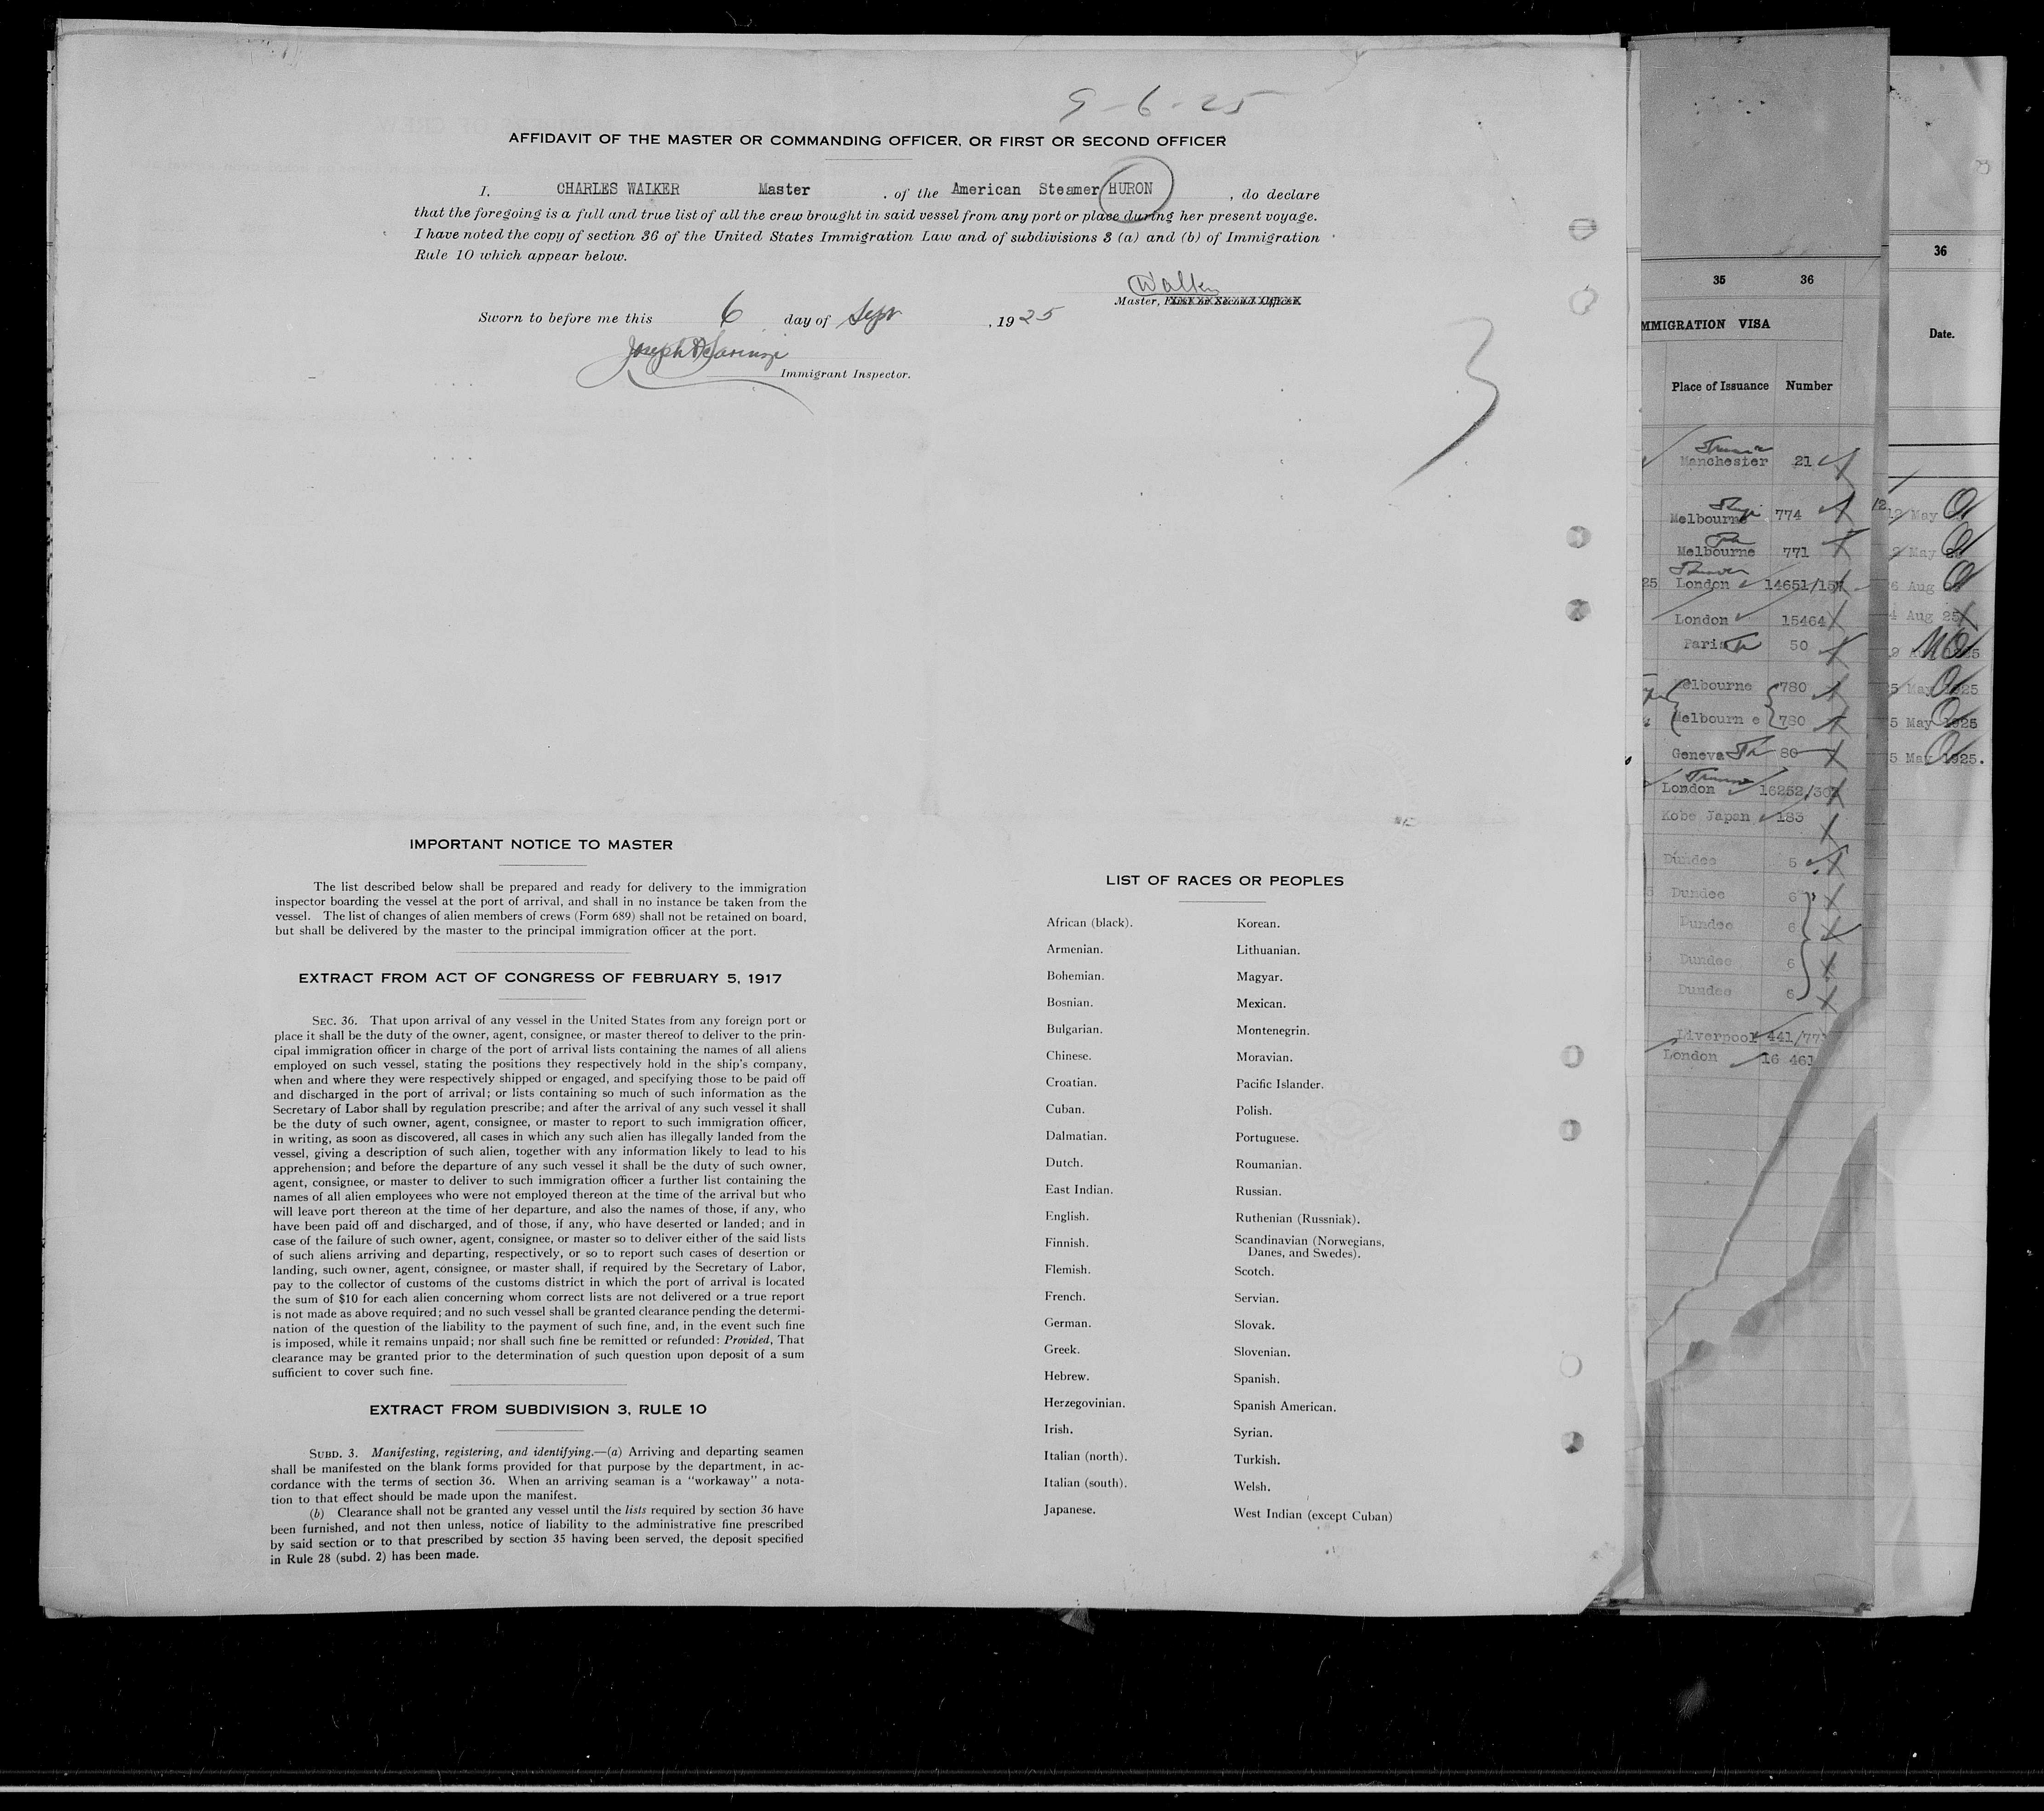 9-6-25
AFFIDAVIT OF THE MASTER OR COMMANDING OFFICER, OR FIRST OR SECOND OFFICER
I, CHARLES WALKER Master , of the American Steamer HURON , do declare
that the foregoing is a full and true list of all the crew brought in said vessel from any port or place during her present voyage.
I have noted the copy of section 36 of the United States Immigration Law and of subdivisions 3 (a) and (b) of Immigration
Rule 10 which appear below.
Walker
Master, First or Second Officer.
Sworn to before me this 6 day of Sept , 1925
Joseph
Immigrant Inspector.
IMPORTANT NOTICE TO MASTER
The list described below shall be prepared and ready for delivery to the immigration
inspector boarding the vessel at the port of arrival, and shall in no instance be taken from the
vessel. The list of changes of alien members of crews (Form 689) shall not be retained on board,
but shall be delivered by the master to the principal immigration officer at the port.
EXTRACT FROM ACT OF CONGRESS OF FEBRUARY 5, 1917
SEC. 36. That upon arrival of any vessel in the United States from any foreign port or
place it shall be the duty of the owner, agent, consignee, or master thereof to deliver to the prin-
cipal immigration officer in charge of the port of arrival lists containing the names of all aliens
employed on such vessel, stating the positions they respectively hold in the ship's company,
when and where they were respectively shipped or engaged, and specifying those to be paid off
and discharged in the port of arrival; or lists containing so much of such information as the
Secretary of Labor shall by regulation prescribe; and after the arrival of any such vessel it shall
be the duty of such owner, agent, consignee, or master to report to such immigration officer,
in writing, as soon as discovered, all cases in which any such alien has illegally landed from the
vessel, giving a description of such alien, together with any information likely to lead to his
apprehension; and before the departure of any such vessel it shall be the duty of such owner,
agent, consignee, or master to deliver to such immigration officer a further list containing the
names of all alien employees who were not employed thereon at the time of the arrival but who
will leave port thereon at the time of her departure, and also the names of those, if any, who
have been paid off and discharged, and of those, if any, who have deserted or landed; and in
case of the failure of such owner, agent, consignee, or master so to deliver either of the said lists
of such aliens arriving and departing, respectively, or so to report such cases of desertion or
landing, such owner, agent, consignee, or master shall, if required by the Secretary of Labor,
pay to the collector of customs of the customs district in which the port of arrival is located
the sum of $10 for each alien concerning whom correct lists are not delivered or a true report
is not made as above required; and no such vessel shall be granted clearance pending the determi-
nation of the question of the liability to the payment of such fine, and, in the event such fine
is imposed, while it remains unpaid; nor shall such fine be remitted or refunded: Provided, That
clearance may be granted prior to the determination of such question upon deposit of a sum
sufficient to cover such fine.
EXTRACT FROM SUBDIVISION 3, RULE 10
SUBD. 3. Manifesting, registering, and identifying.—(a) Arriving and departing seamen
shall be manifested on the blank forms provided for that purpose by the department, in ac-
cordance with the terms of section 36. When an arriving seaman is a "workaway" a nota-
tion to that effect should be made upon the manifest.
(b) Clearance shall not be granted any vessel until the lists required by section 36 have
been furnished, and not then unless, notice of liability to the administrative fine prescribed
by said section or to that prescribed by section 35 having been served, the deposit specified
in Rule 28 (subd. 2) has been made.
LIST OF RACES OR PEOPLES
African (black).
Armenian.
Bohemian.
Bosnian.
Bulgarian.
Chinese.
Croatian.
Cuban.
Dalmatian.
Dutch.
East Indian.
English.
Finnish.
Flemish.
French.
German.
Greek.
Hebrew.
Herzegovinian.
Irish.
Italian (north).
Italian (south).
Japanese.
Korean.
Lithuanian.
Magyar.
Mexican.
Montenegrin.
Moravian.
Pacific Islander.
Polish.
Portuguese.
Roumanian.
Russian.
Ruthenian (Russniak).
Scandinavian (Norwegians,
Danes, and Swedes).
Scotch.
Servian.
Slovak.
Slovenian.
Spanish.
Spanish American.
Syrian.
Turkish.
Welsh.
West Indian (except Cuban)
35 36
MMIGRATION VISA
Place of Issuance Number
Manchester 21
Melbourne 774
Melbourne 771
25 London 14651/15
London 15464
Paris 50
Melbourne 780
Melbourn e 780
Geneva 80
London 16252/30
Kobe Japan 183
Dundee 5
Dundee 6
Dundee 6
Dundee 6
Dundee 6
Liverpool 441/77
London 16 461
36
Date.
12 May
2 May
6 Aug 25
4 Aug 25
9 Aug 1925
5 May 1925
5 May 1925
5 May 1925.